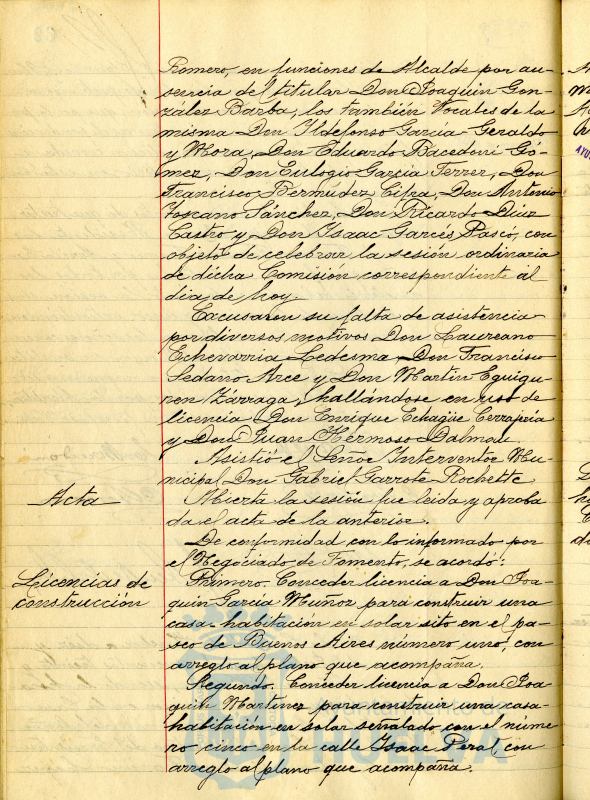 Romero, en funciones de Alcalde por au-
sencia del titular Don Joaquin Gon-
zález Barba, los también Vocales de la
misma Don Ildefonso García-Geraldo
y Mora, Don Eduardo Bacedoni Gó-
mez, Don Eulogio García Ferrer, Don
Francisco Bermúdez Cifra, Don Antonio
Toscano Sánchez, Don Ricardo Díaz
Castro y Don Isaac Garcés Pascó, con
objeto de celebrar la sesión ordinaria
de dicha Comisión correspondiente al
dia de hoy.
Excusaron su falta de asistencia
por diversos motivos Don Laureano
Echevarria Ledesma, Don Francisco
Sedano Arce y Don Martin Eguigu-
ren Azárraga, hallándose en uso de
licencia Don Enrique Echagüe
y Don Juan Hermoso Dalmau.
Asistió el Señor Interventor Mu-
nicipal Don Gabriel Garrote Rochette
Acta
Abierta la sesión fue leida y aproba
da el acta de la anterior.
De conformidad con lo informado por
el Negociado de Fomento, se acordó:
Licencias de
construcción
Primero. Conceder licencia a Don Joa-
quin García Muñoz para construir una
casa-habitación en solar sito en el pa-
seo de Buenos Aires número uno, con
arreglo al plano que acompaña.
Segundo. Conceder licencia a Don Joa-
quin Martinez para construir una casa-
habitación en solar señalado con el núme
ro cinco en la calle Isaac Peral, con
arreglo al plano que acompaña.
HUELVA